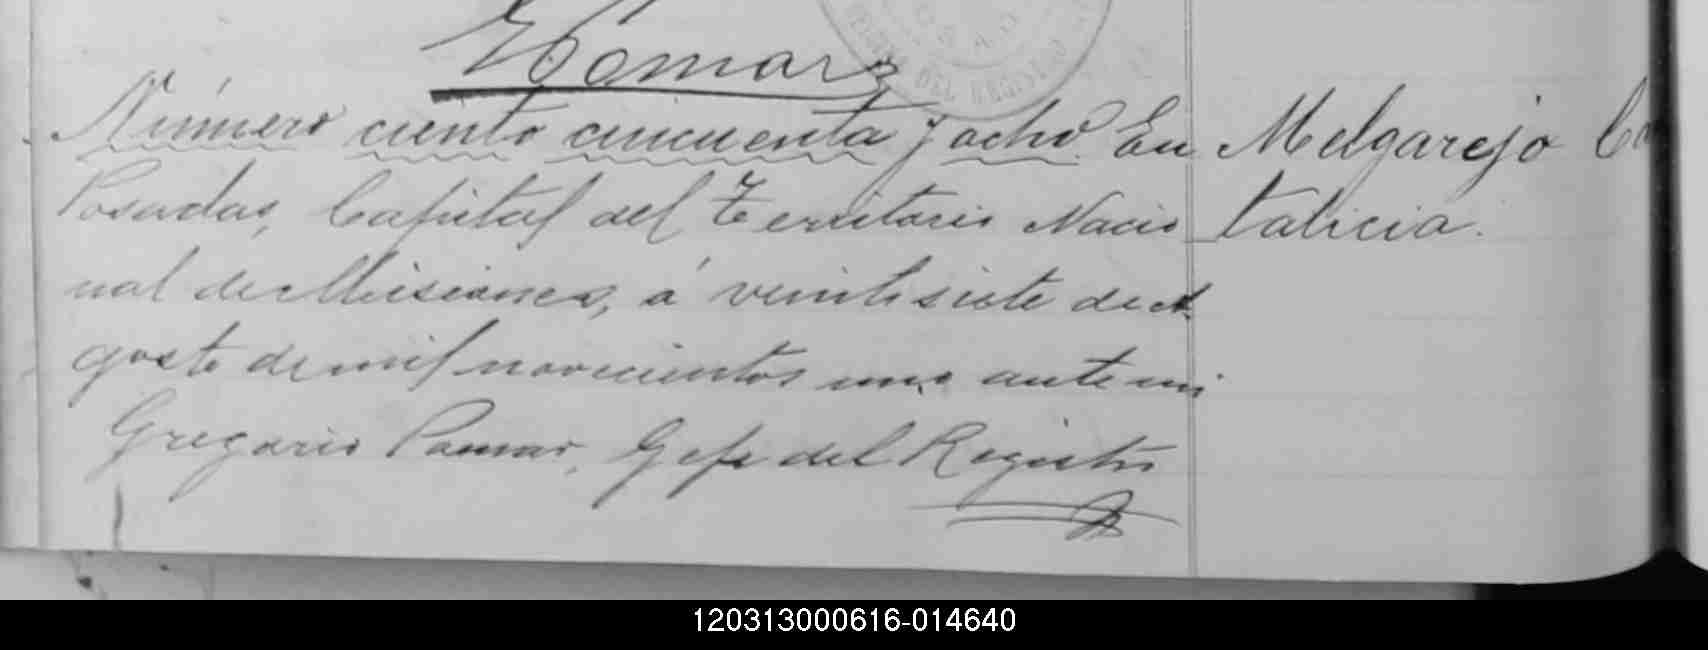 Número ciento cincuenta y ocho. En
Posadas, Capital del Territorio Nacio
nal de Misiones, á veintisiete de A
gosto de mil novecientos uno ante mi
Gregorio Pomar, Gefe del Registro
Melgarejo Ca
talicia.
DEL REGISTRO
120313000616-014640